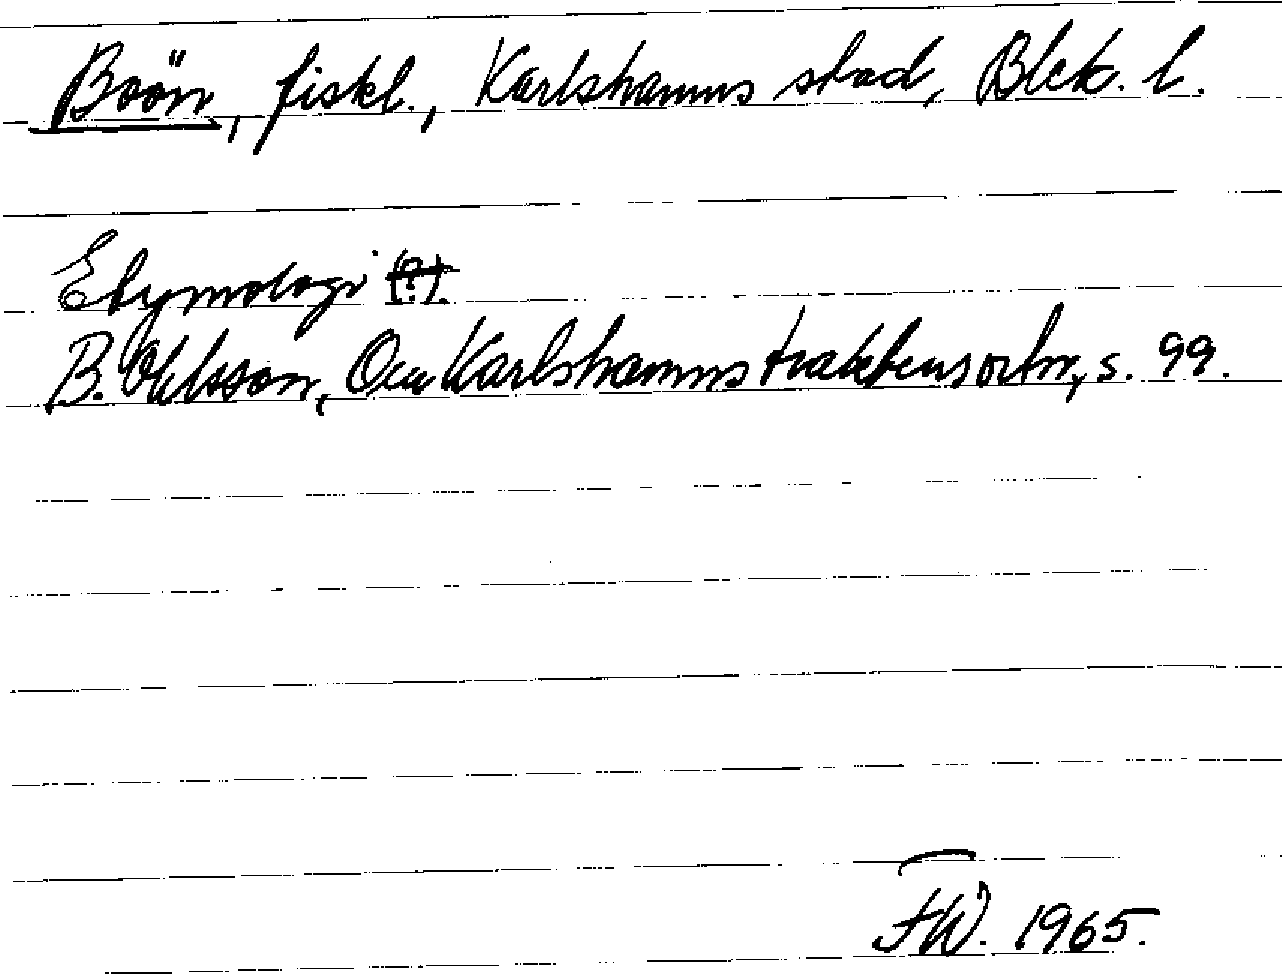 Boön, fiskl., Karlshamns stad, Blek. l.
Etymologi (?).
B. Ohlsson, Om Karlshamnstraktens ortn, s. 99.
FW. 1965.